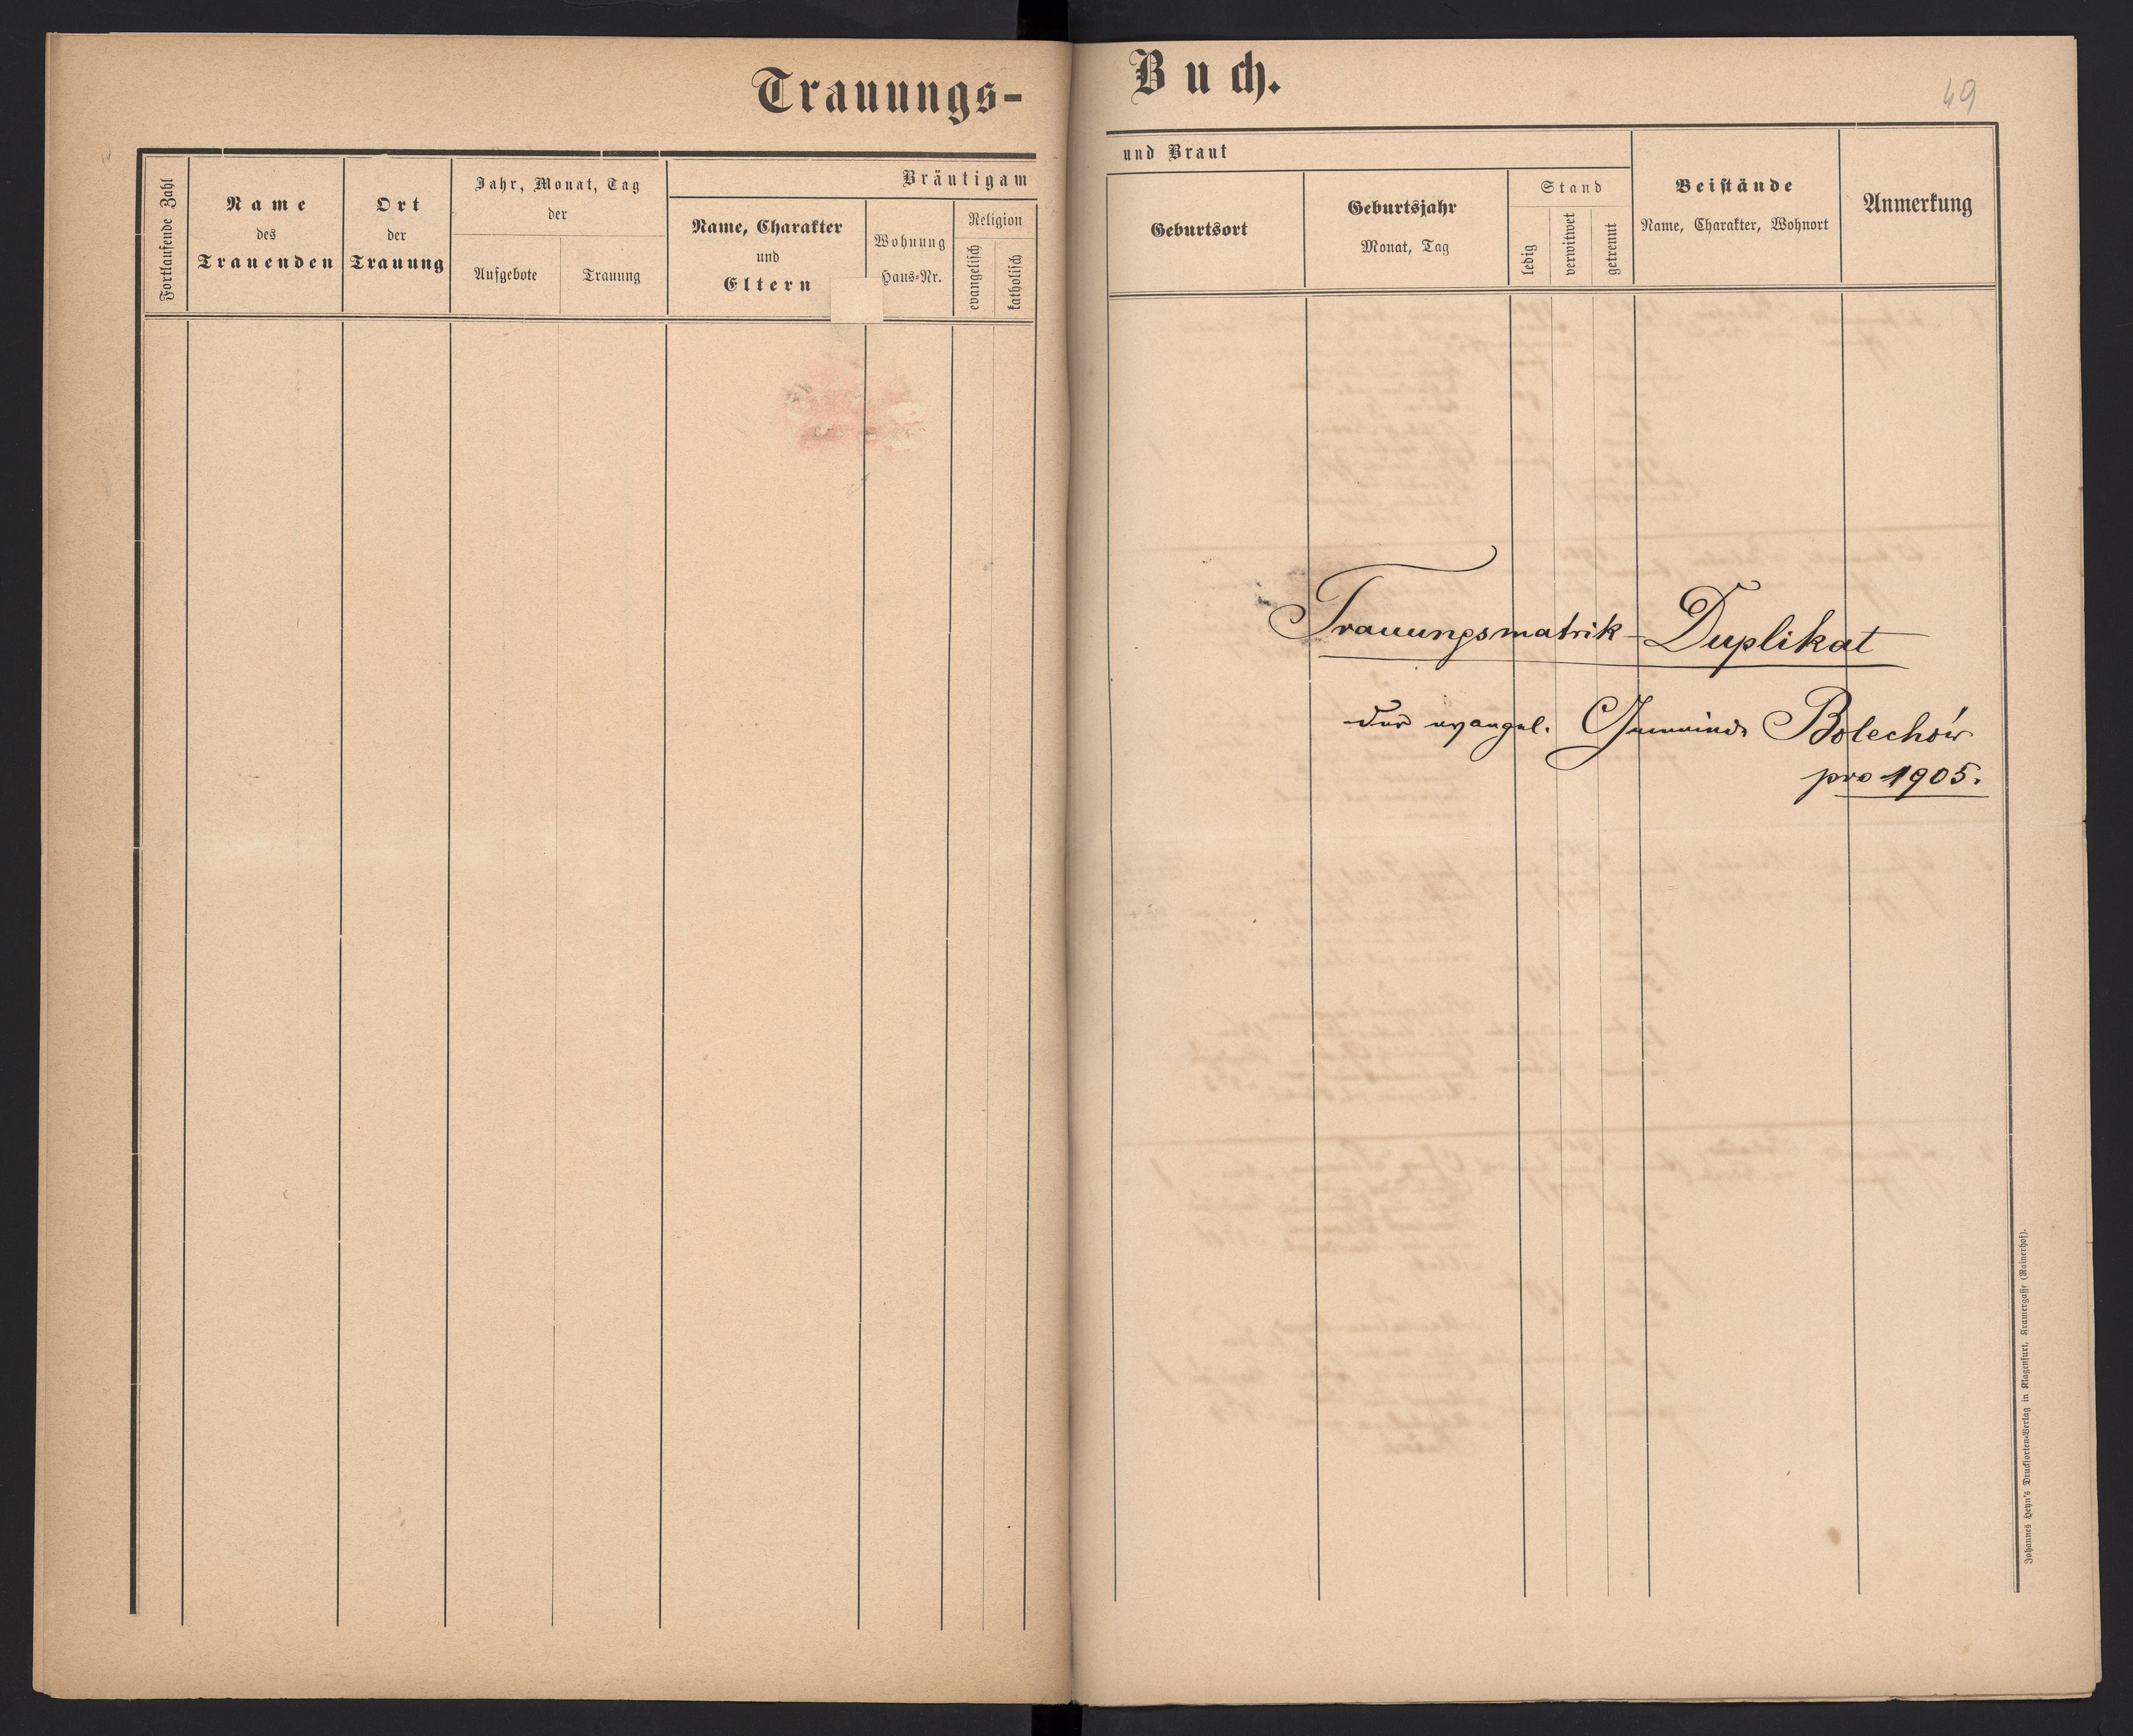 Trauungs-
Buch.
49
Fortlaufende Zahl
Name
des
Trauenden
Ort
der
Trauung
Jahr, Monat, Tag
der
Aufgebote
Trauung
Bräutigam
Name, Charakter
und
Eltern
Wohnung
Haus-Nr.
Religion
evangelisch
katholisch
und Braut
Geburtsort
Geburtsjahr
Monat, Tag
Stand
ledig
verwitwet
getrennt
Beistände
Name, Charakter, Wohnort
Anmerkung
Trauungsmatrik-Duplikat
der evangel. Gemeinde Bolechów
pro 1905.
Johannes Heyn's Drucksorten-Verlag in Klagenfurt, Kramergasse (Rainerhof).